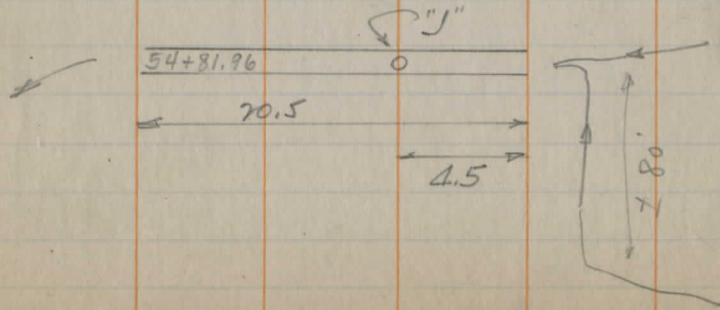 "J"
54+81.96
20.5
4.5
± 80'